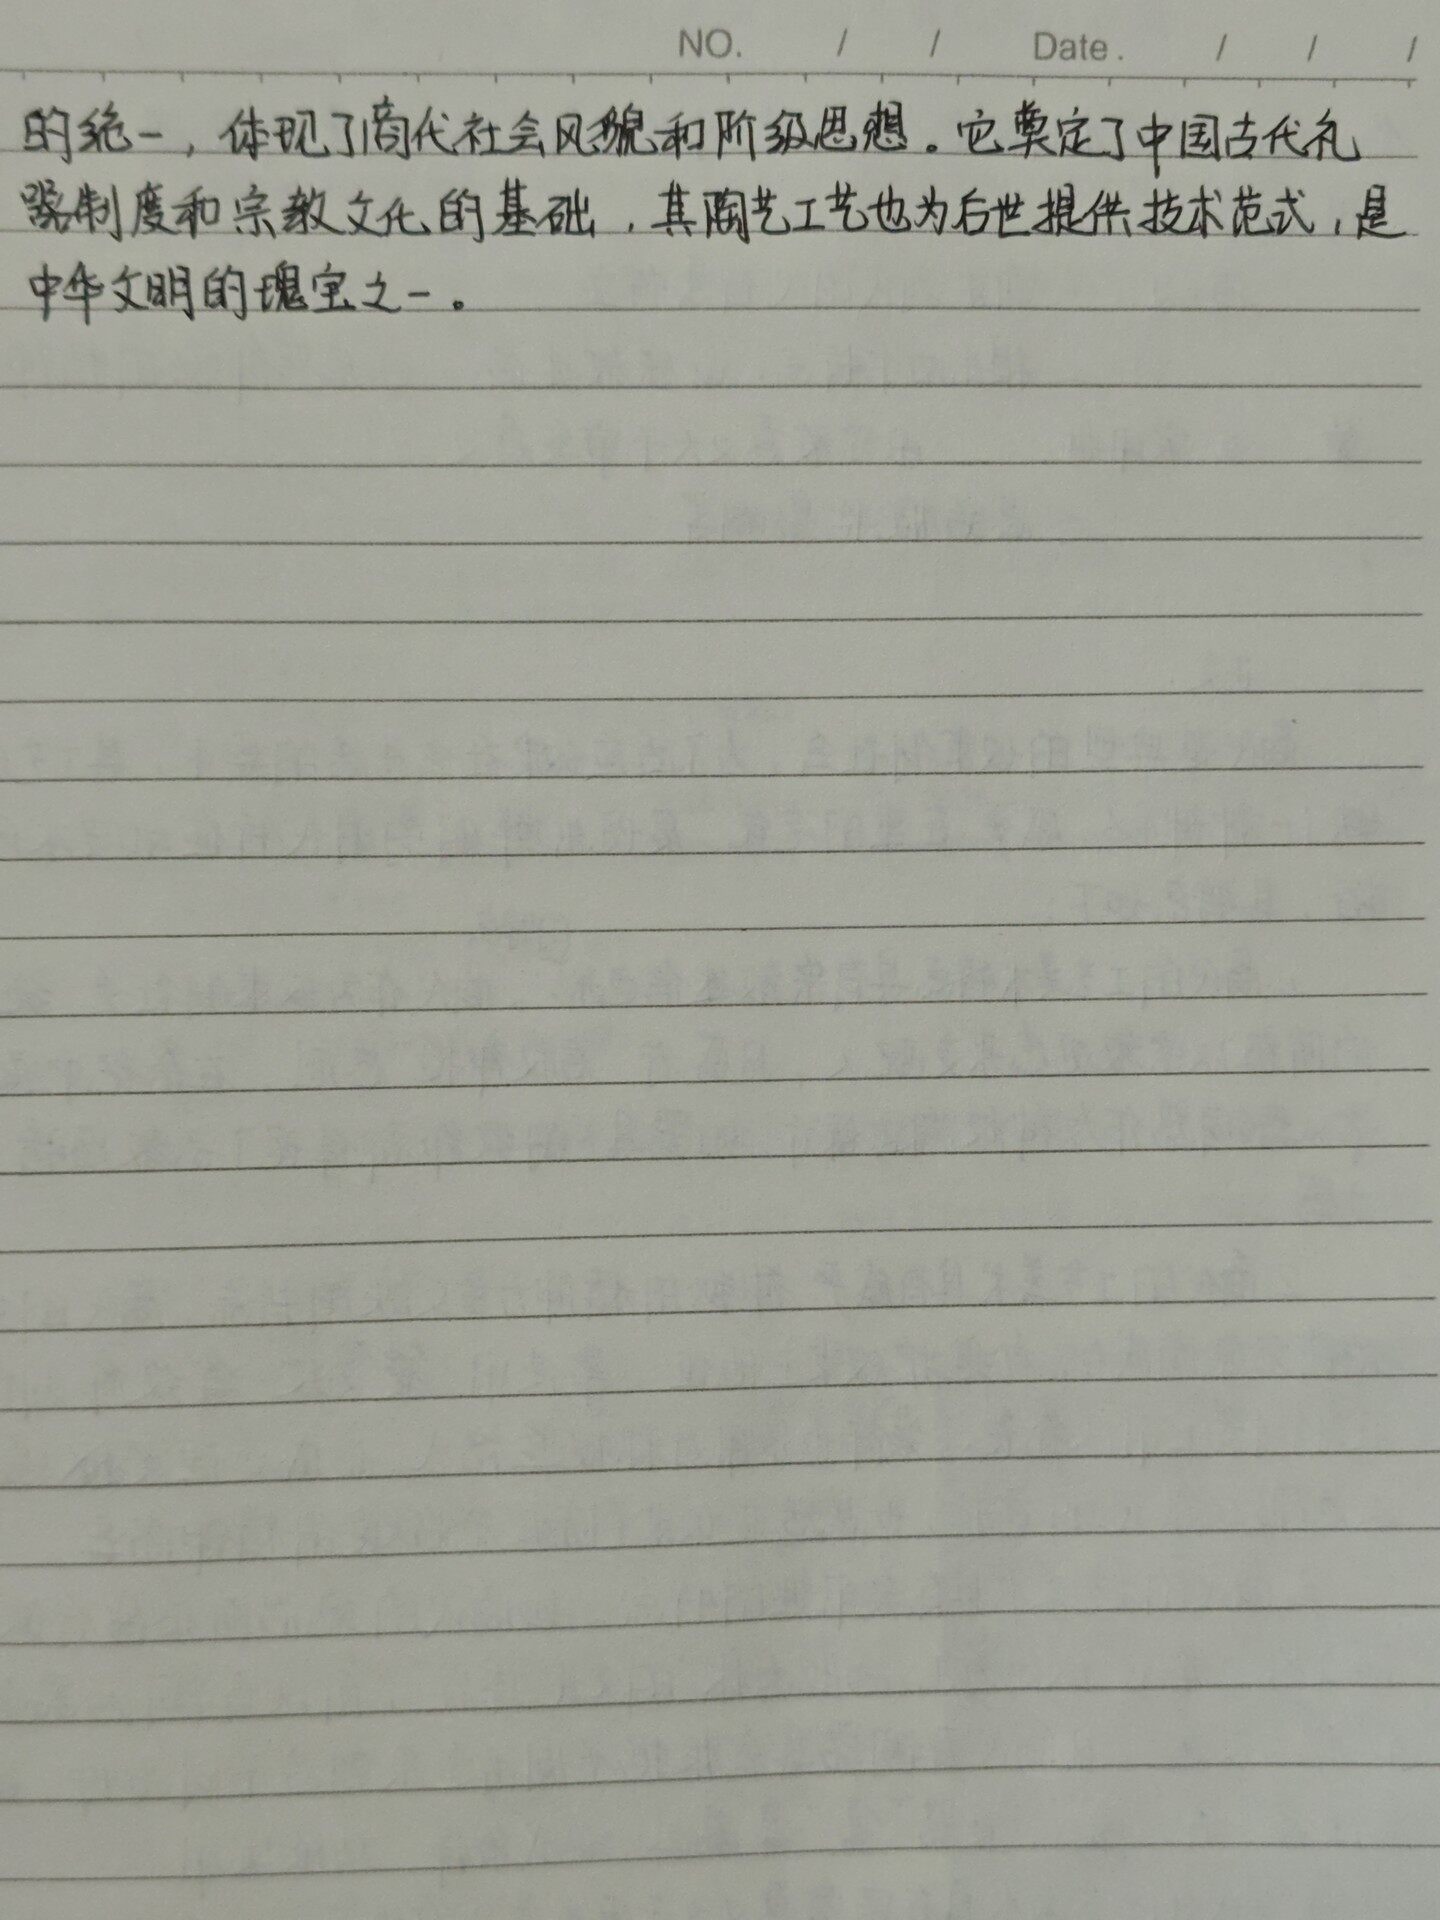 NO. / / Date. / / /
的统一，体现了商代社会风貌和阶级思想。它奠定了中国古代礼
器制度和宗教文化的基础，其陶艺工艺也为后世提供技术范式，是
中华文明的瑰宝之一。